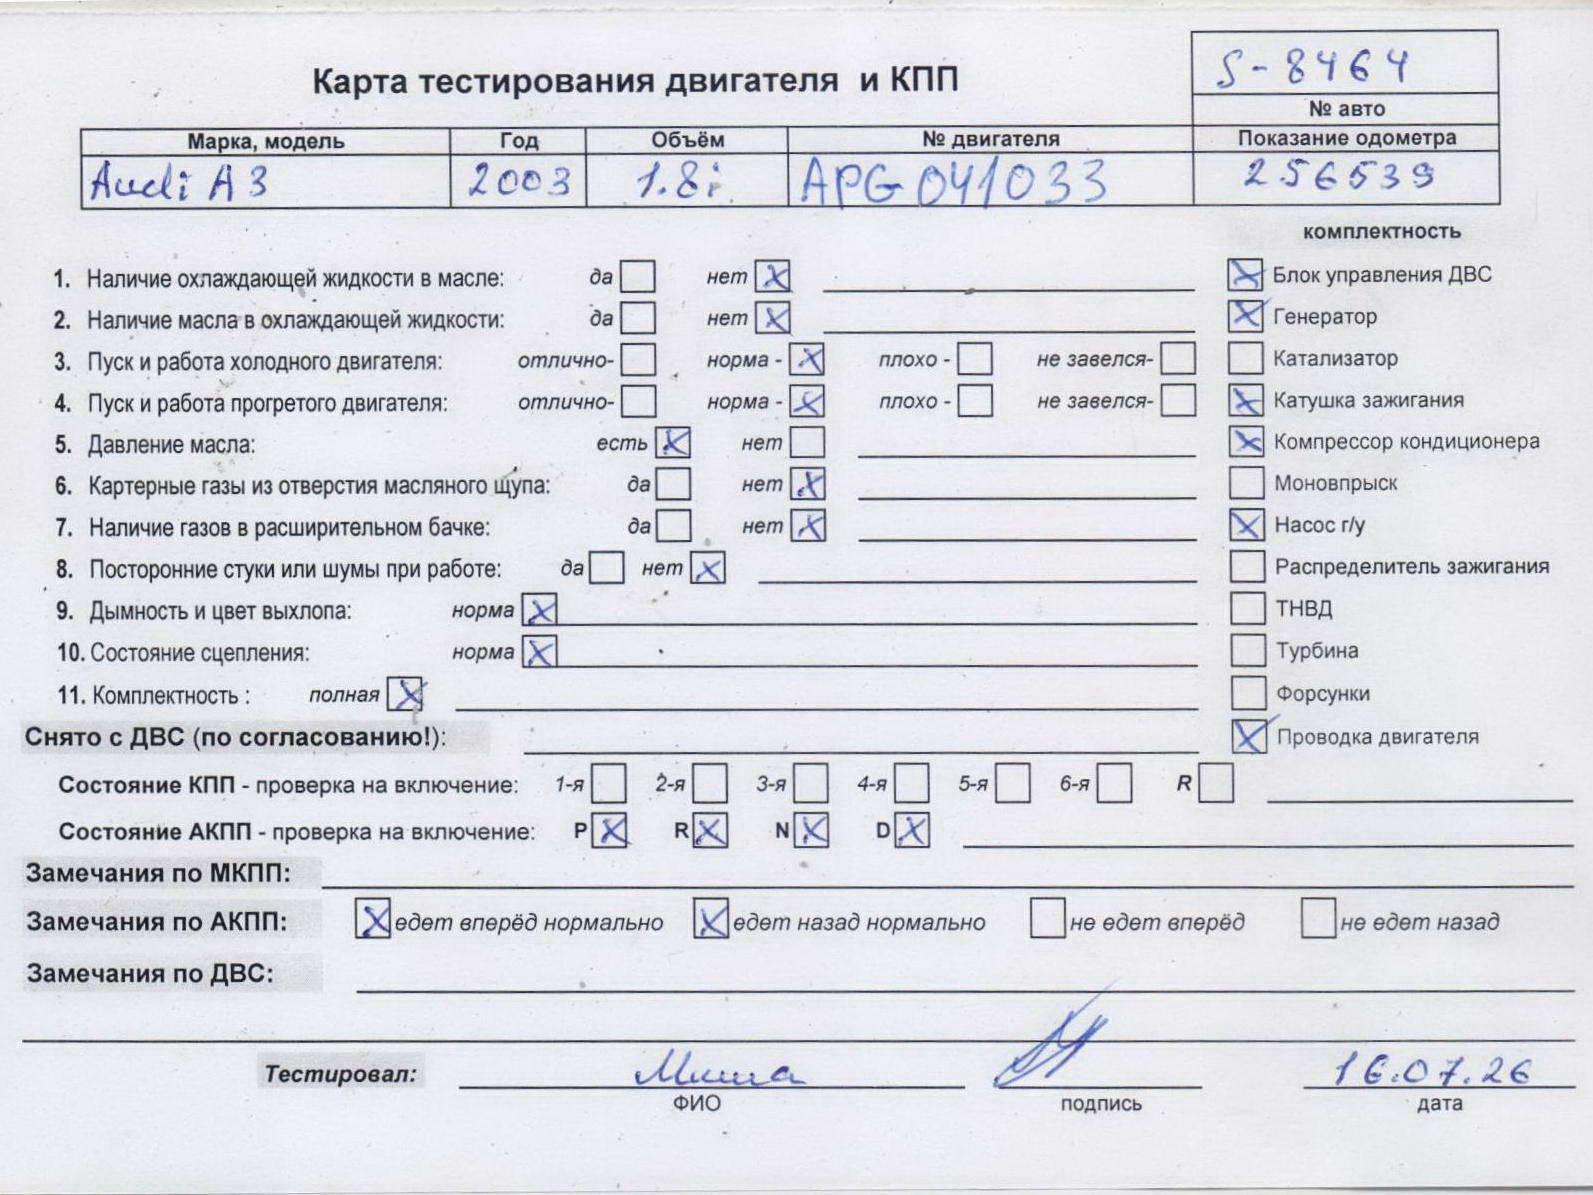 S-8464
Карта тестирования двигателя и КПП
№ авто
Марка, модель Год Объём № двигателя Показание одометра
Audi A3 2003 1.8i APG041033 256539
комплектность
1. Наличие охлаждающей жидкости в масле: да нет Блок управления ДВС
2. Наличие масла в охлаждающей жидкости: да нет Генератор
3. Пуск и работа холодного двигателя: отлично- норма - плохо - не завелся- Катализатор
4. Пуск и работа прогретого двигателя: отлично- норма - плохо - не завелся- Катушка зажигания
5. Давление масла: есть нет Компрессор кондиционера
6. Картерные газы из отверстия масляного щупа: да нет Моновпрыск
7. Наличие газов в расширительном бачке: да нет Насос г/у
8. Посторонние стуки или шумы при работе: да нет Распределитель зажигания
9. Дымность и цвет выхлопа: норма ТНВД
10. Состояние сцепления: норма Турбина
11. Комплектность : полная Форсунки
Снято с ДВС (по согласованию!): Проводка двигателя
Состояние КПП - проверка на включение: 1-я 2-я 3-я 4-я 5-я 6-я R
Состояние АКПП - проверка на включение: P R N D
Замечания по МКПП:
Замечания по АКПП: едет вперёд нормально едет назад нормально не едет вперёд не едет назад
Замечания по ДВС:
Тестировал: Миша 16.07.26
ФИО подпись дата